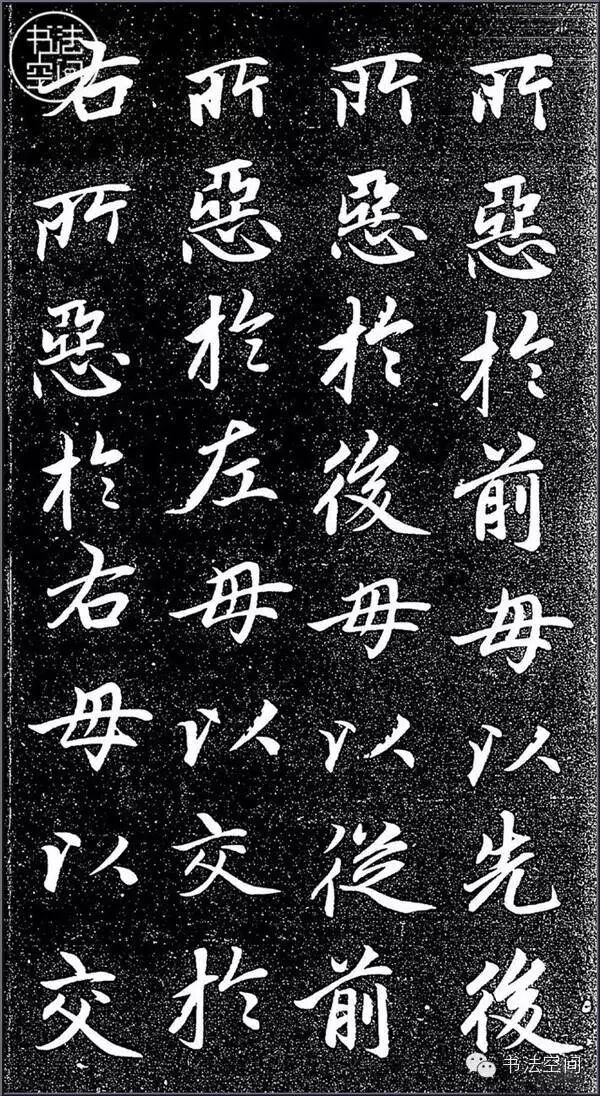 所惡於前毋以先後
所惡於後毋以從前
所惡於左毋以交於
右所惡於右毋以交
书法空间
书法空间